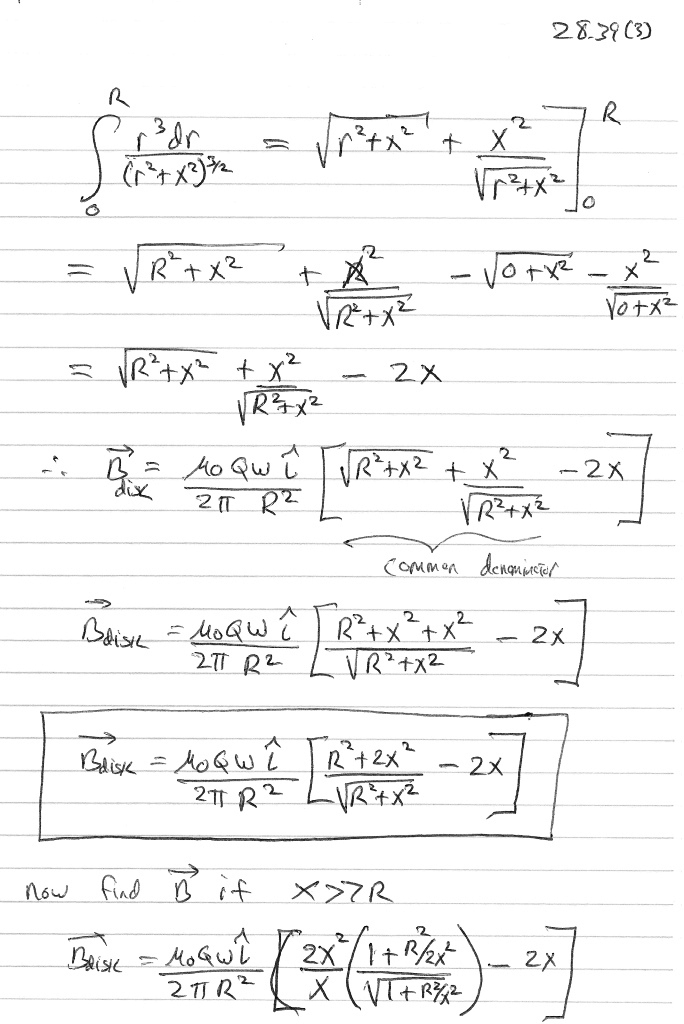 28.39(3)
∫₀ᴿ r³dr/(r²+x²)^(3/2) = √(r²+x²) + x²/√(r²+x²) ]₀ᴿ
= √(R²+x²) + x²/√(R²+x²) - √(0+x²) - x²/√(0+x²)
= √(R²+x²) + x²/√(R²+x²) - 2x
∴ B⃗disk = μ₀Qω î/(2π R²) [√(R²+x²) + x²/√(R²+x²) - 2x]
common denominator
B⃗disk = μ₀Qω î/(2π R²) [(R²+x²+x²)/√(R²+x²) - 2x]
B⃗disk = μ₀Qω î/(2π R²) [(R²+2x²)/√(R²+x²) - 2x]
now find B⃗ if x>>R
B⃗disk = μ₀Qω î/(2πR²) [2x²/x ((1+R²/2x²)/√(1+R²/x²)) - 2x]